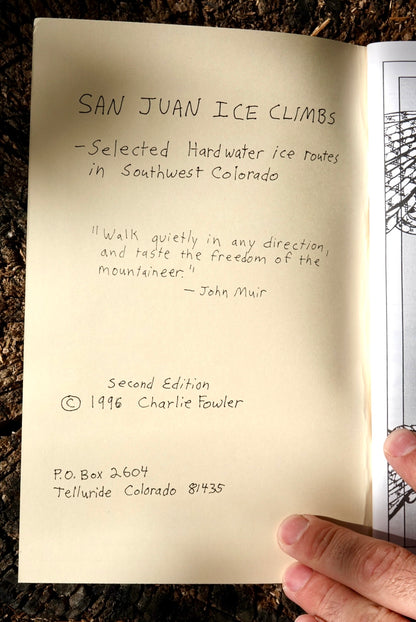 SAN JUAN ICE CLIMBS
- Selected Hardwater ice routes
in Southwest Colorado
"Walk quietly in any direction,
and taste the freedom of the
mountaineer."
- John Muir
Second Edition
© 1996 Charlie Fowler
P.O. Box 2604
Telluride Colorado 81435